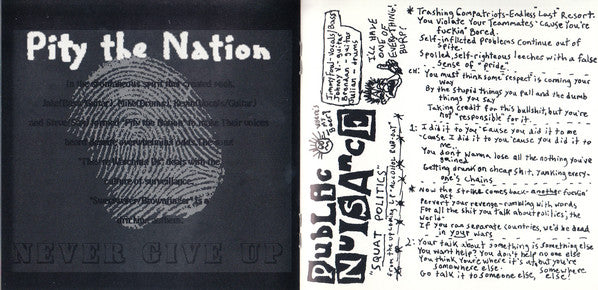 Pity the Nation
In the spontaneous spirit that created
Jake(Bass Guitar), Mike(Drums), Kevin(Vocals/Guitar)
and Steve formed "Pity the Nation" to make their voices
heard despite overwhelming odds. The song
"They're Watching Us" deals with the
nature of surveillance.
is a
anthem.
NEVER GIVE UP
Jimmy Foul-Vocals/Bass
Johnny V.- guitar
Brendan - guitar
Julian - drums
I'LL HAVE
ONE OF
EVERYTHING!
BURP!
PUBLIC
NUISANCE
"SQUAT POLITICS"
* Trashing Compatriots-Endless "Last" Resort.
You Violate Your Teammates 'Cause You're
fuckin' Bored.
Self-inflicted problems continue out of
spite.
Spoiled, self-righteous leeches with a false
sense of "pride".
CH: You must think some respect is coming your
way
By the stupid things you pull and the dumb
things you say
Taking credit for this bullshit, but you're
not "responsible" for it.
1: I did it to you 'Cause you did it to me
-Cause I did it to you 'cause you did it to
me..
You don't wanna lose all the nothing you've
gained
Getting drunk on cheap shit, yanking every-
one's chains
* Now the stroke comes back-another fuckin'
act
Pervert your revenge-rambling with words
For all the shit you talk about politics, the
world-
If you ran separate countries, we'd be dead
in your wars
2: Your talk about something is something else
You want help? You don't help no one else
You think you're where it's at, but you're
somewhere else-
Go talk it to someone else, somewhere
else!